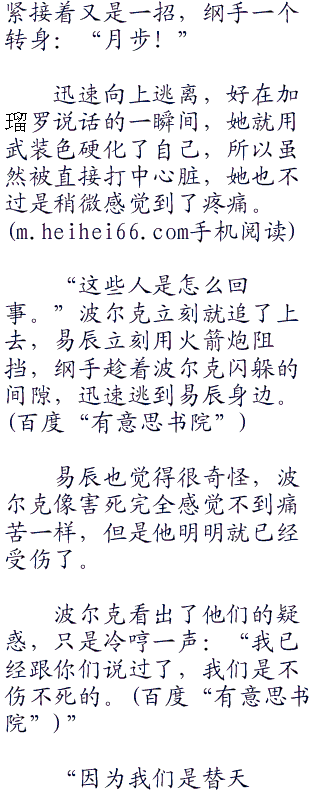 紧接着又是一招，纲手一个
转身：“月步！”
迅速向上逃离，好在加
瑠罗说话的一瞬间，她就用
武装色硬化了自己，所以虽
然被直接打中心脏，她也不
过是稍微感觉到了疼痛。
(m.heihei66.com手机阅读)
“这些人是怎么回
事。”波尔克立刻就追了上
去，易辰立刻用火箭炮阻
挡，纲手趁着波尔克闪躲的
间隙，迅速逃到易辰身边。
(百度“有意思书院”)
易辰也觉得很奇怪，波
尔克像害死完全感觉不到痛
苦一样，但是他明明就已经
受伤了。
波尔克看出了他们的疑
惑，只是冷哼一声：“我已
经跟你们说过了，我们是不
伤不死的。(百度“有意思书
院”)”
“因为我们是替天